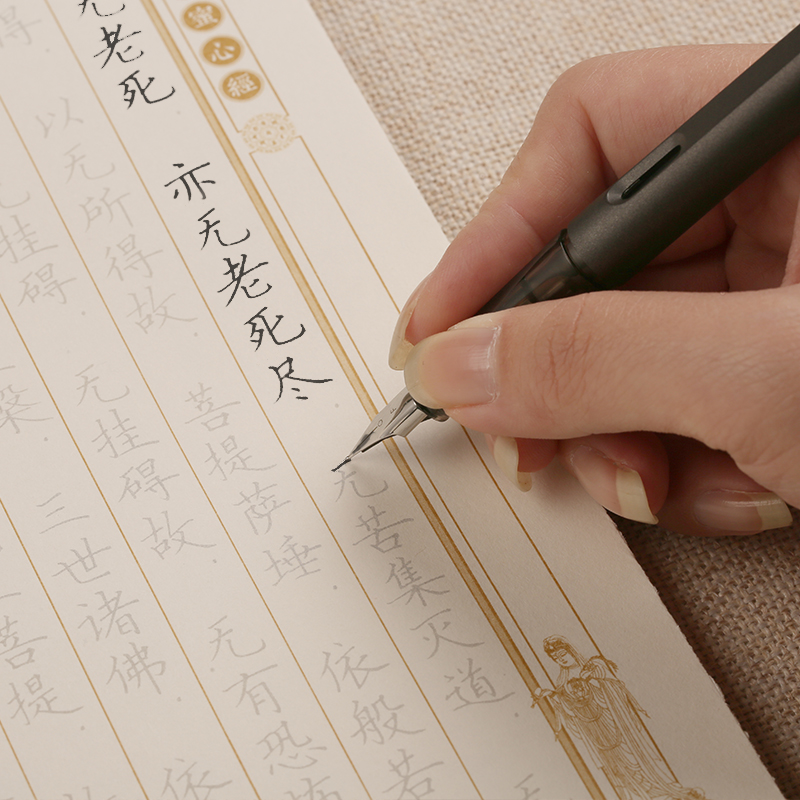 蜜心經
无老死 亦无老死尽 无苦集灭道 无
得 以无所得故 菩提萨埵 依般若
无挂碍 无挂碍故 无有恐怖
槃 三世诸佛 依
菩提